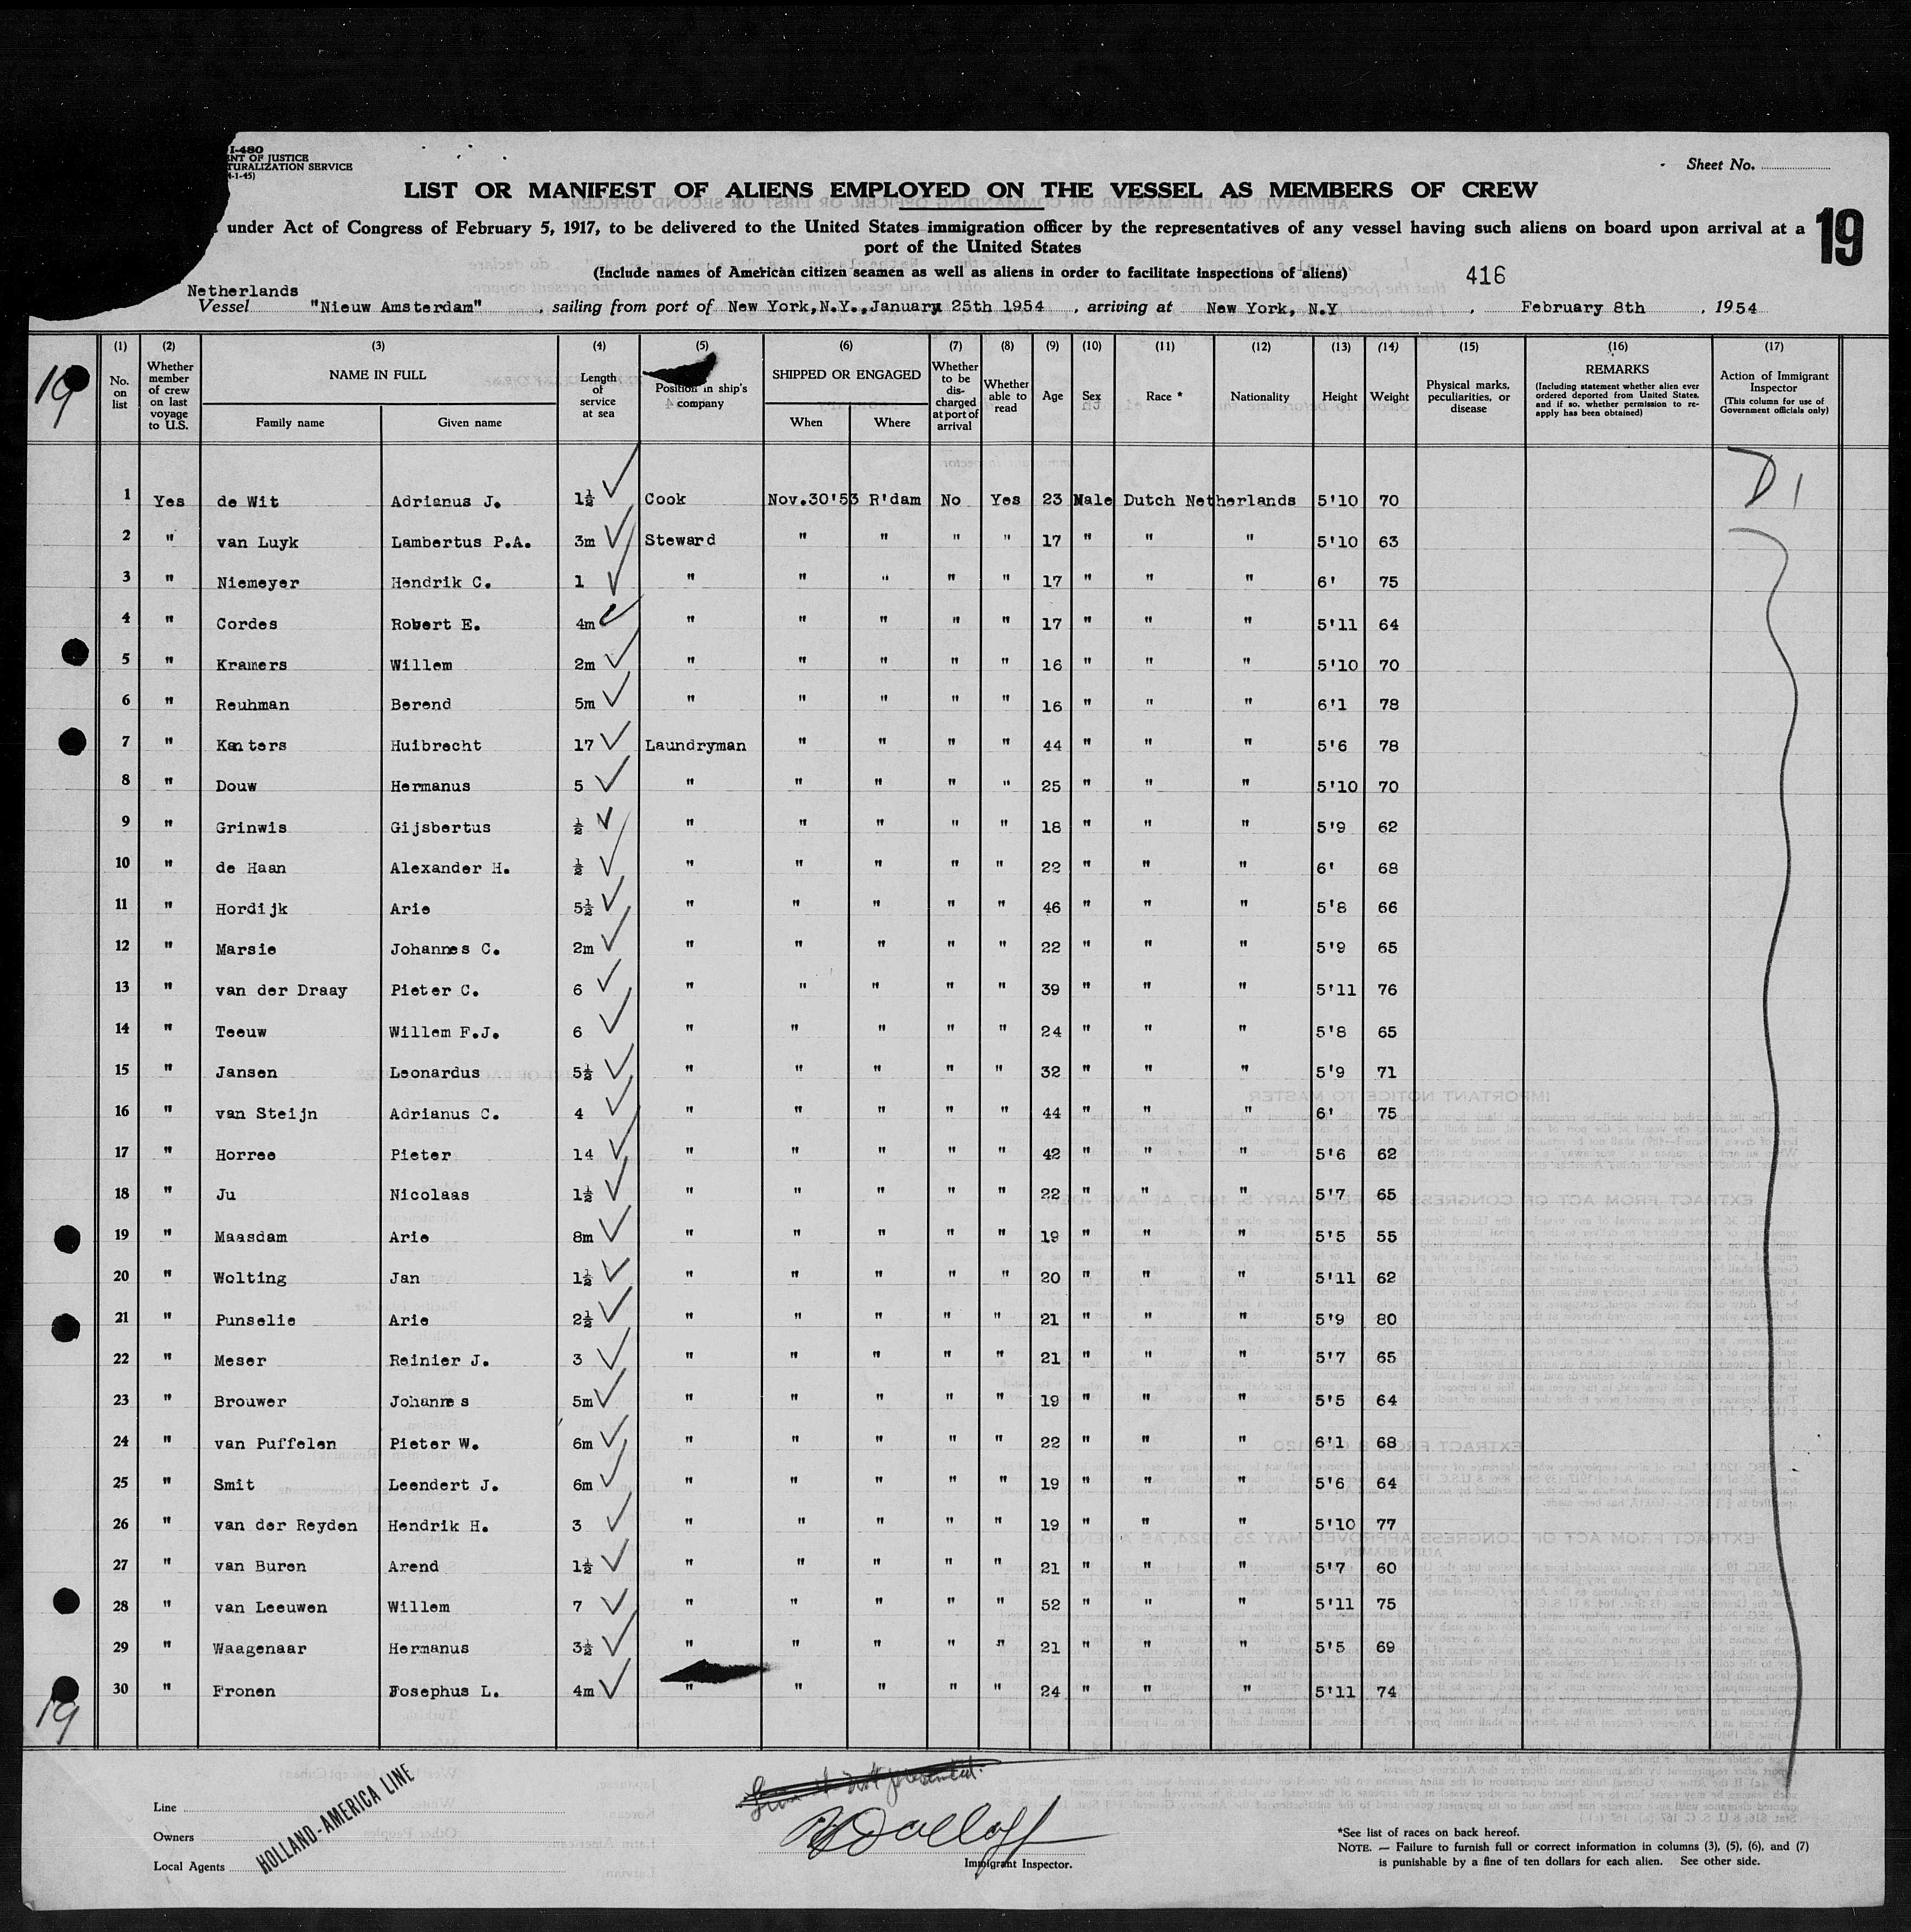 I-480
ENT OF JUSTICE
TURALIZATION SERVICE
4-1-45)
Sheet No.
LIST OR MANIFEST OF ALIENS EMPLOYED ON THE VESSEL AS MEMBERS OF CREW
under Act of Congress of February 5, 1917, to be delivered to the United States immigration officer by the representatives of any vessel having such aliens on board upon arrival at a
port of the United States
19
(Include names of American citizen seamen as well as aliens in order to facilitate inspections of aliens)
416
Netherlands
Vessel "Nieuw Amsterdam", sailing from port of New York,N.Y.,January 25th 1954, arriving at New York, N.Y, February 8th, 1954
19
(1) (2) (3) (4) (5) (6) (7) (8) (9) (10) (11) (12) (13) (14) (15) (16) (17)
No. on list
Whether member of crew on last voyage to U.S.
NAME IN FULL
Family name Given name
Length of service at sea
Position in ship's company
SHIPPED OR ENGAGED
When Where
Whether to be discharged at port of arrival
Whether able to read
Age Sex Race * Nationality Height Weight
Physical marks, peculiarities, or disease
REMARKS
(Including statement whether alien ever ordered deported from United States, and if so, whether permission to re-apply has been obtained)
Action of Immigrant Inspector
(This column for use of Government officials only)
D 1
1 Yes de Wit Adrianus J. 1½ Cook Nov.30'53 R'dam No Yes 23 Male Dutch Netherlands 5'10 70
2 " van Luyk Lambertus P.A. 3m Steward " " " " 17 " " " 5'10 63
3 " Niemeyer Hendrik C. 1 " " " " " 17 " " " 6' 75
4 " Cordes Robert E. 4m " " " " " 17 " " " 5'11 64
5 " Kramers Willem 2m " " " " " 16 " " " 5'10 70
6 " Reuhman Berend 5m " " " " " 16 " " " 6'1 78
7 " Kanters Huibrecht 17 Laundryman " " " " 44 " " " 5'6 78
8 " Douw Hermanus 5 " " " " " 25 " " " 5'10 70
9 " Grinwis Gijsbertus ½ " " " " " 18 " " " 5'9 62
10 " de Haan Alexander H. ½ " " " " " 22 " " " 6' 68
11 " Hordijk Arie 5½ " " " " " 46 " " " 5'8 66
12 " Marsie Johannes C. 2m " " " " " 22 " " " 5'9 65
13 " van der Draay Pieter C. 6 " " " " " 39 " " " 5'11 76
14 " Teeuw Willem F.J. 6 " " " " " 24 " " " 5'8 65
15 " Jansen Leonardus 5½ " " " " " 32 " " " 5'9 71
16 " van Steijn Adrianus C. 4 " " " " " 44 " " " 6' 75
17 " Horree Pieter 14 " " " " " 42 " " " 5'6 62
18 " Ju Nicolaas 1½ " " " " " 22 " " " 5'7 65
19 " Maasdam Arie 8m " " " " " 19 " " " 5'5 55
20 " Wolting Jan 1½ " " " " " 20 " " " 5'11 62
21 " Punselie Arie 2½ " " " " " 21 " " " 5'9 80
22 " Meser Reinier J. 3 " " " " " 21 " " " 5'7 65
23 " Brouwer Johannes 5m " " " " " 19 " " " 5'5 64
24 " van Puffelen Pieter W. 6m " " " " " 22 " " " 6'1 68
25 " Smit Leendert J. 6m " " " " " 19 " " " 5'6 64
26 " van der Reyden Hendrik H. 3 " " " " " 19 " " " 5'10 77
27 " van Buren Arend 1½ " " " " " 21 " " " 5'7 60
28 " van Leeuwen Willem 7 " " " " " 52 " " " 5'11 75
29 " Waagenaar Hermanus 3½ " " " " " 21 " " " 5'5 69
30 " Fronen Josephus L. 4m " " " " " 24 " " " 5'11 74
19
Line
Owners
Local Agents
HOLLAND-AMERICA LINE
Immigrant Inspector.
*See list of races on back hereof.
NOTE. — Failure to furnish full or correct information in columns (3), (5), (6), and (7)
is punishable by a fine of ten dollars for each alien. See other side.